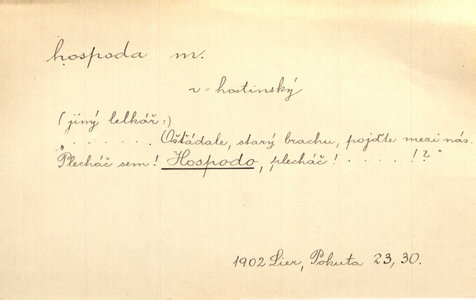 hospoda m.
v = hostinský
(jiný lelkář:)
„ . . . . . . . Ošťádale, starý brachu, pojďte mezi nás.
Plecháč sem! Hospodo, plecháč! . . . . . !?"
1902 Lier, Pokuta 23, 30.